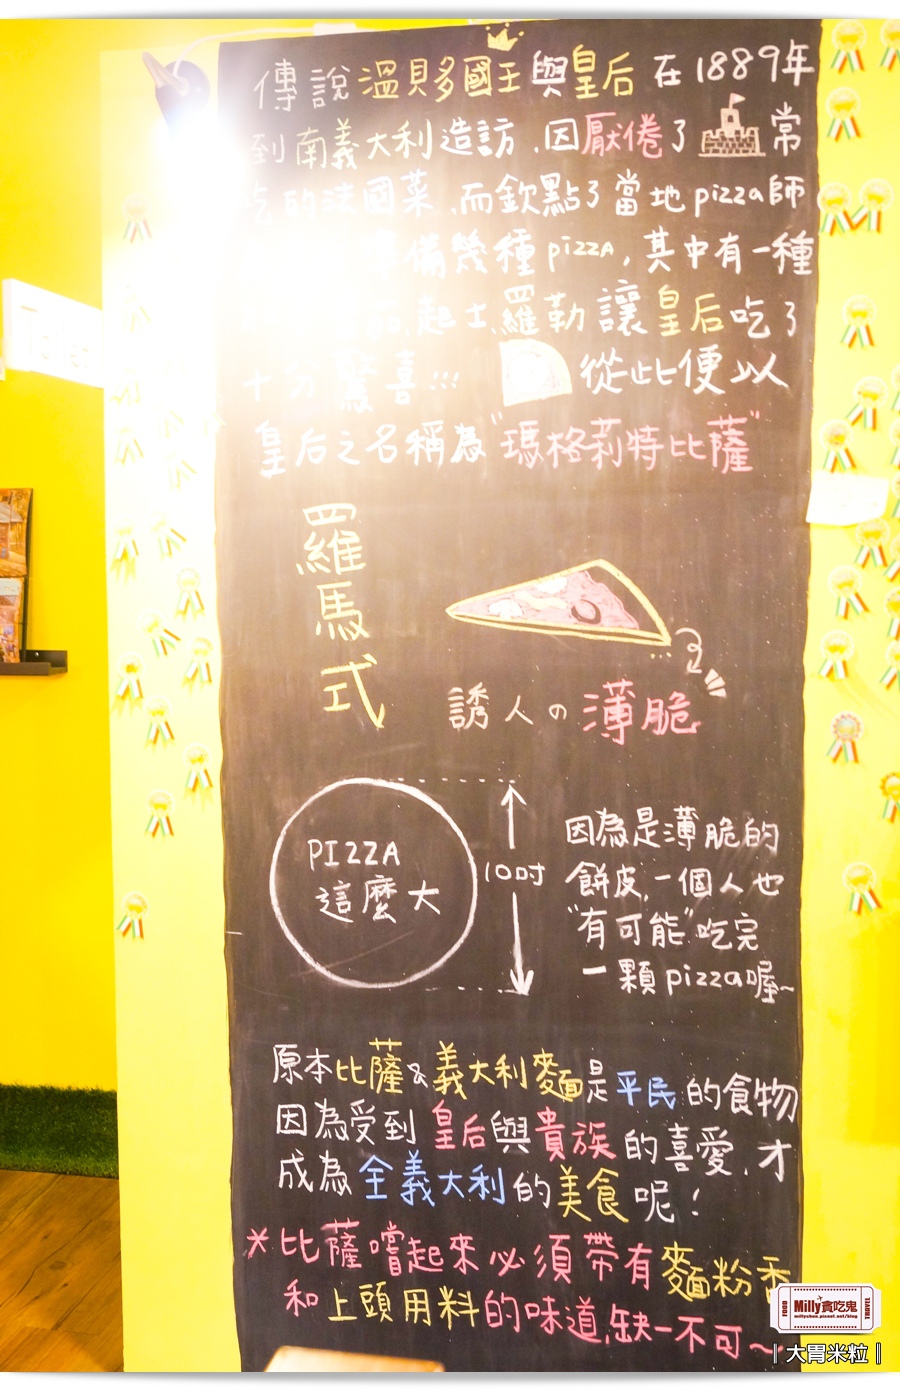 傳說溫貝多國王與皇后在1889年
到南義大利造訪,因厭倦了 常
吃的法國菜,而欽點了當地pizza師
準備幾種pizza,其中有一種
起士、羅勒讓皇后吃了
十分驚喜!!! 從此便以
皇后之名稱為"瑪格莉特比薩"
羅馬式
誘人の薄脆
PIZZA
這麼大
10吋
因為是薄脆的
餅皮,一個人也
"有可能"吃完
一顆pizza喔~
原本比薩&義大利麵是平民的食物
因為受到皇后與貴族的喜愛,才
成為全義大利的美食呢!
*比薩嚐起來必須帶有麵粉香
和上頭用料的味道,缺一不可~
FOOD
Milly貪吃鬼
millychun.pixnet.net/blog
TRAVEL
‖大胃米粒‖